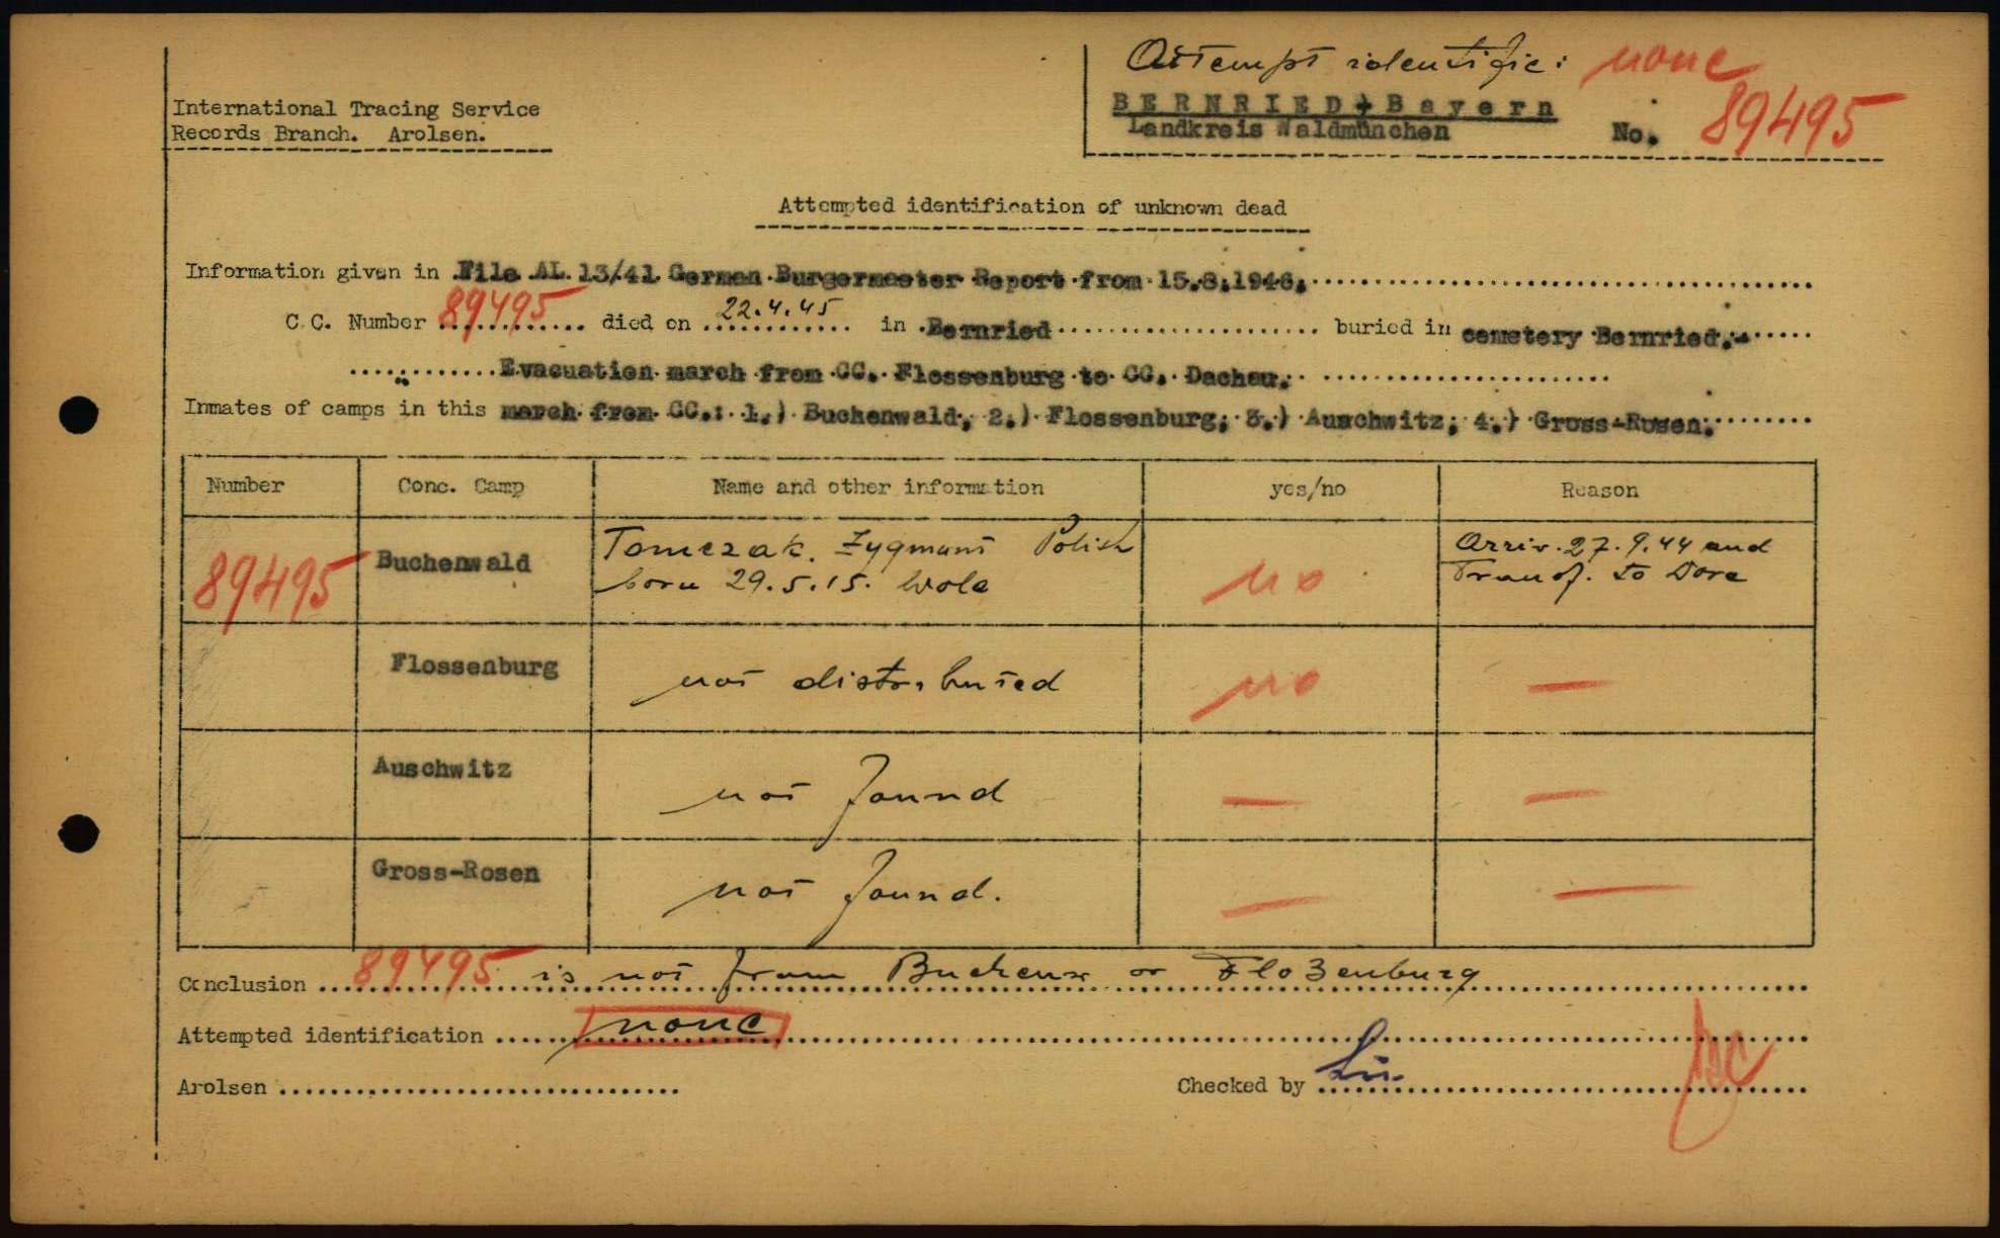 Attempt identific: none
International Tracing Service
Records Branch. Arolsen.
BERNRIED + Bayern
Landkreis Waldmünchen No. 89495
Attempted identification of unknown dead
Information given in File AL 13/41 German Burgermeester Report from 15.8.1946.
C.C. Number 89495 died on 22.4.45 in Bernried buried in cemetery Bernried.-
Evacuation march from CC. Flossenburg to CC. Dachau.
Inmates of camps in this march from CC.: 1.) Buchenwald, 2.) Flossenburg; 3.) Auschwitz; 4.) Gross-Rosen.
Number Conc. Camp Name and other information yes/no Reason
89495 Buchenwald Tomczak. Zygmunt Polish no Arriv. 27.9.44 and
born 29.5.15. Wola Transf. to Dora
Flossenburg not distributed no —
Auschwitz not found — —
Gross-Rosen not found. — —
Conclusion 89495 is not from Buchenw or Floßenburg
Attempted identification none
Arolsen Checked by